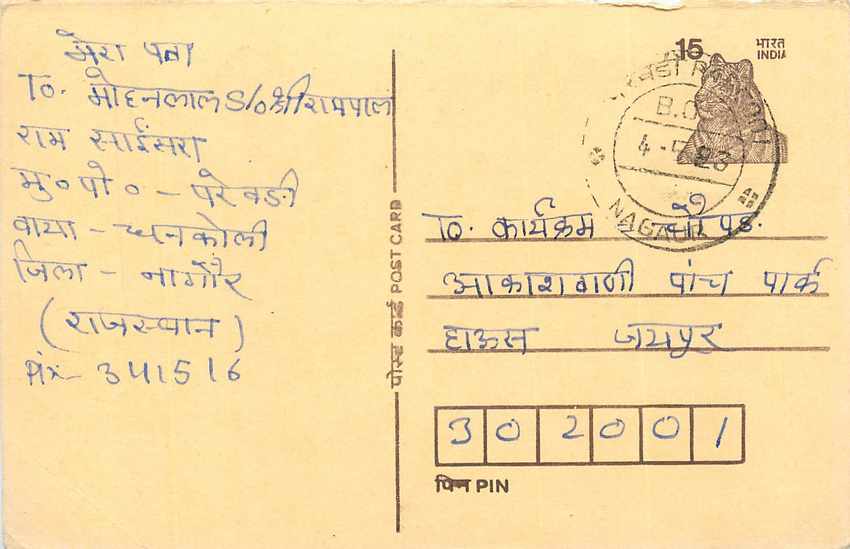 मेरा पता
To. मोहनलाल S/o श्रीरामपाल
राम साईसरा
मु० पो ० – परेवडी
वाया – च्चनकोली
जिला – नागौर
(राजस्थान)
पिन – 341516
पोस्ट कार्ड POST CARD
15
भारत
INDIA
B.O
4-5-83
NAGAUR
To. कार्यक्रम चौपड.
आकाशवाणी पांच पार्क
हाऊस जयपुर
302001
पिन PIN